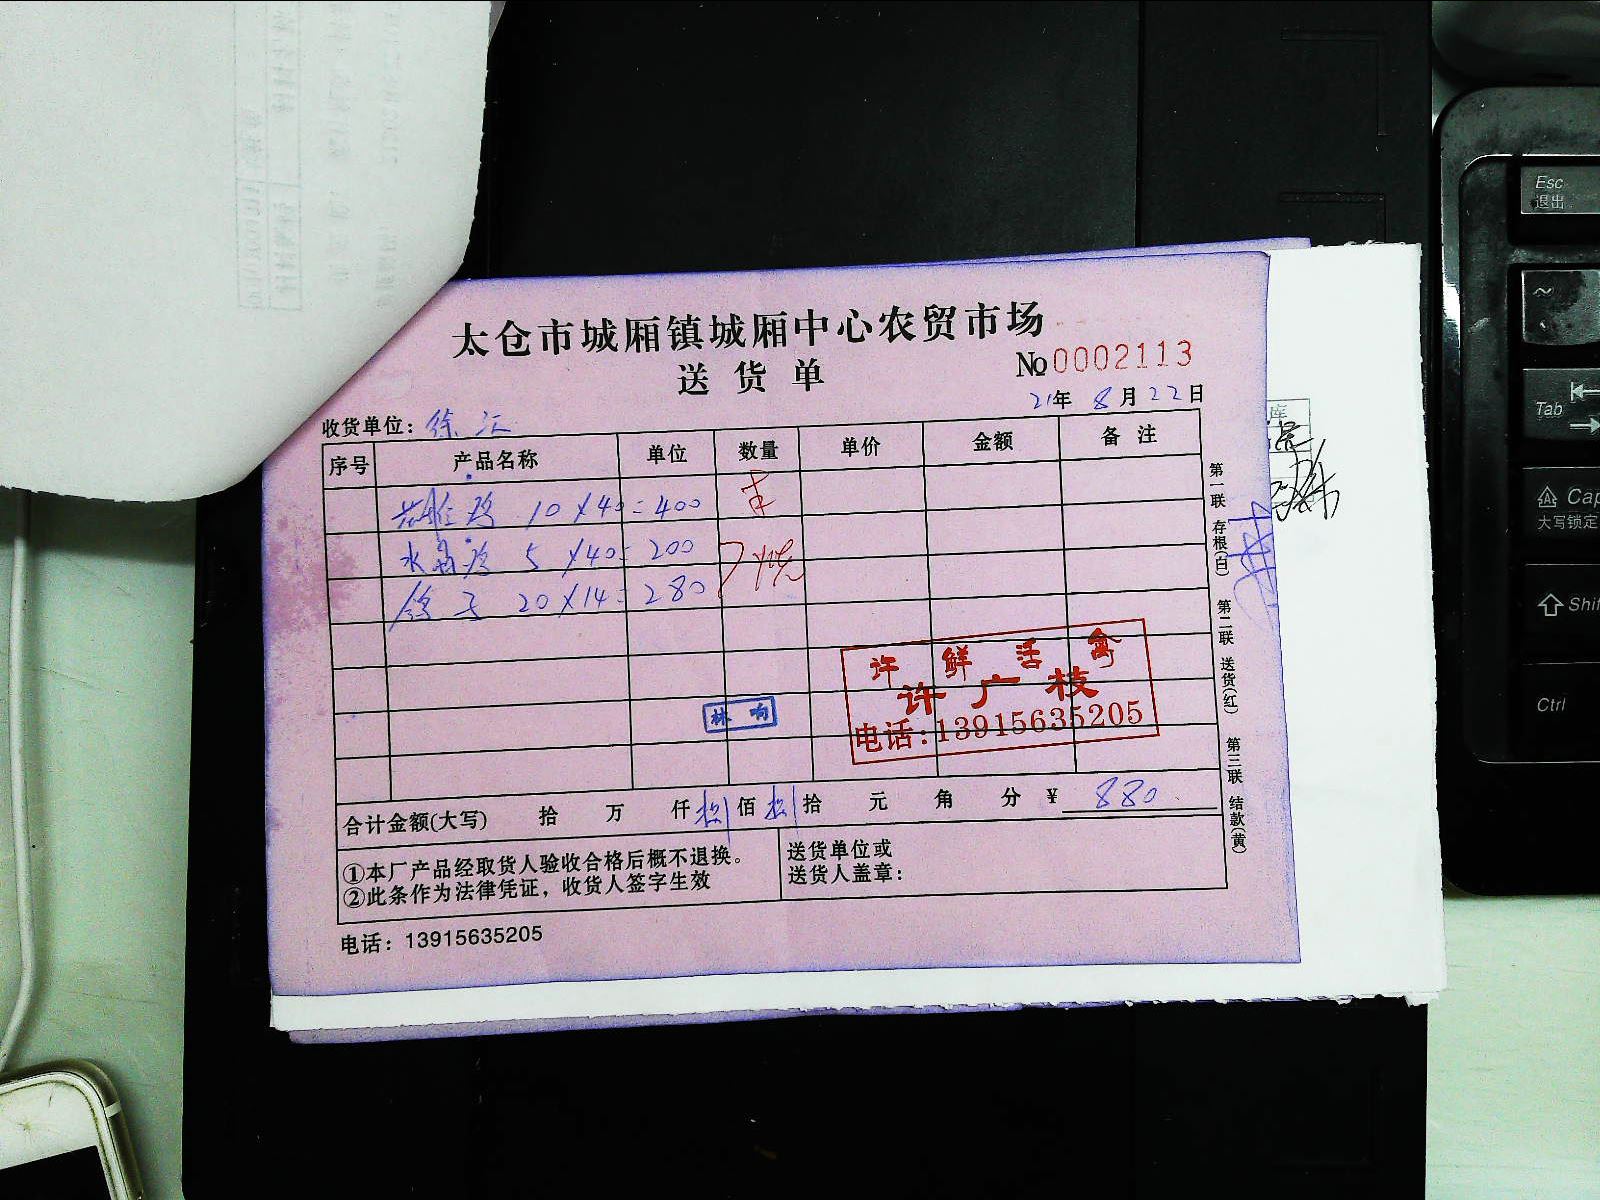 太仓市城厢镇城厢中心农贸市场
送货单
No 0002113
21年 8月 22日
收货单位：徐
序号 产品名称 单位 数量 单价 金额 备注
鸡 10×40=400
水晶鸡 5×40=200
鸽子 20×14=280
许 鲜 活 禽
许广枝
电话:13915635205
林响
合计金额(大写) 拾 万 仟 捌 佰 捌 拾 元 角 分 ¥ 880
①本厂产品经取货人验收合格后概不退换。
②此条作为法律凭证，收货人签字生效
送货单位或
送货人盖章：
电话：13915635205
第一联 存根(白) 第二联 送货(红) 第三联 结款(黄)
库
Esc
退出
~
Tab
Cap
大写锁定
Shif
Ctrl